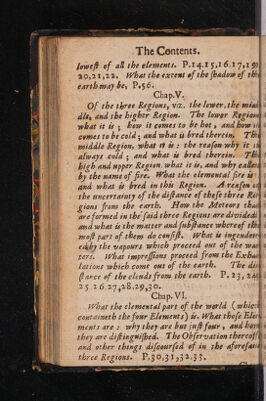 The Contents.
lowest of all the elements. P.14.15,16.17,19
20,21,22. What the extent of the shadow of the
earth may be, P.56.
Chap.V.
Of the three Regions, viz. the lower, the mid
dle, and the higher Region. The lower Region
what it is; how it comes to be hot, and how it
comes to be cold; and what is bred therein. The
middle Region, what it is: the reason why it is
alway cold; and what is bred therein. The
high and upper Region what it is, and why called
by the name of fire. What the elemental fire is
and what is bred in this Region. A reason of
the uncertainty of the distance of these three Re
gions from the earth. How the Meteors that
are formed in the said three Regions are divided;
and what is the matter and substance whereof the
most part of them do consist. What is ingendere
ed by the vapours which proceed out of the wa
ters. What impressions proceed from the Exha
lations which come out of the earth. The di
stance of the clouds from the earth. P. 23, 24
25 26.27,28.29,30.
Chap.VI.
What the elemental part of the world (which
containeth the four Elements) is. What those Ele
ments are: why they are but just four, and how
they are distinguished. The Observation thereof
and other things discoursed of in the aforesaid
three Regions. P.30,31,32.33.